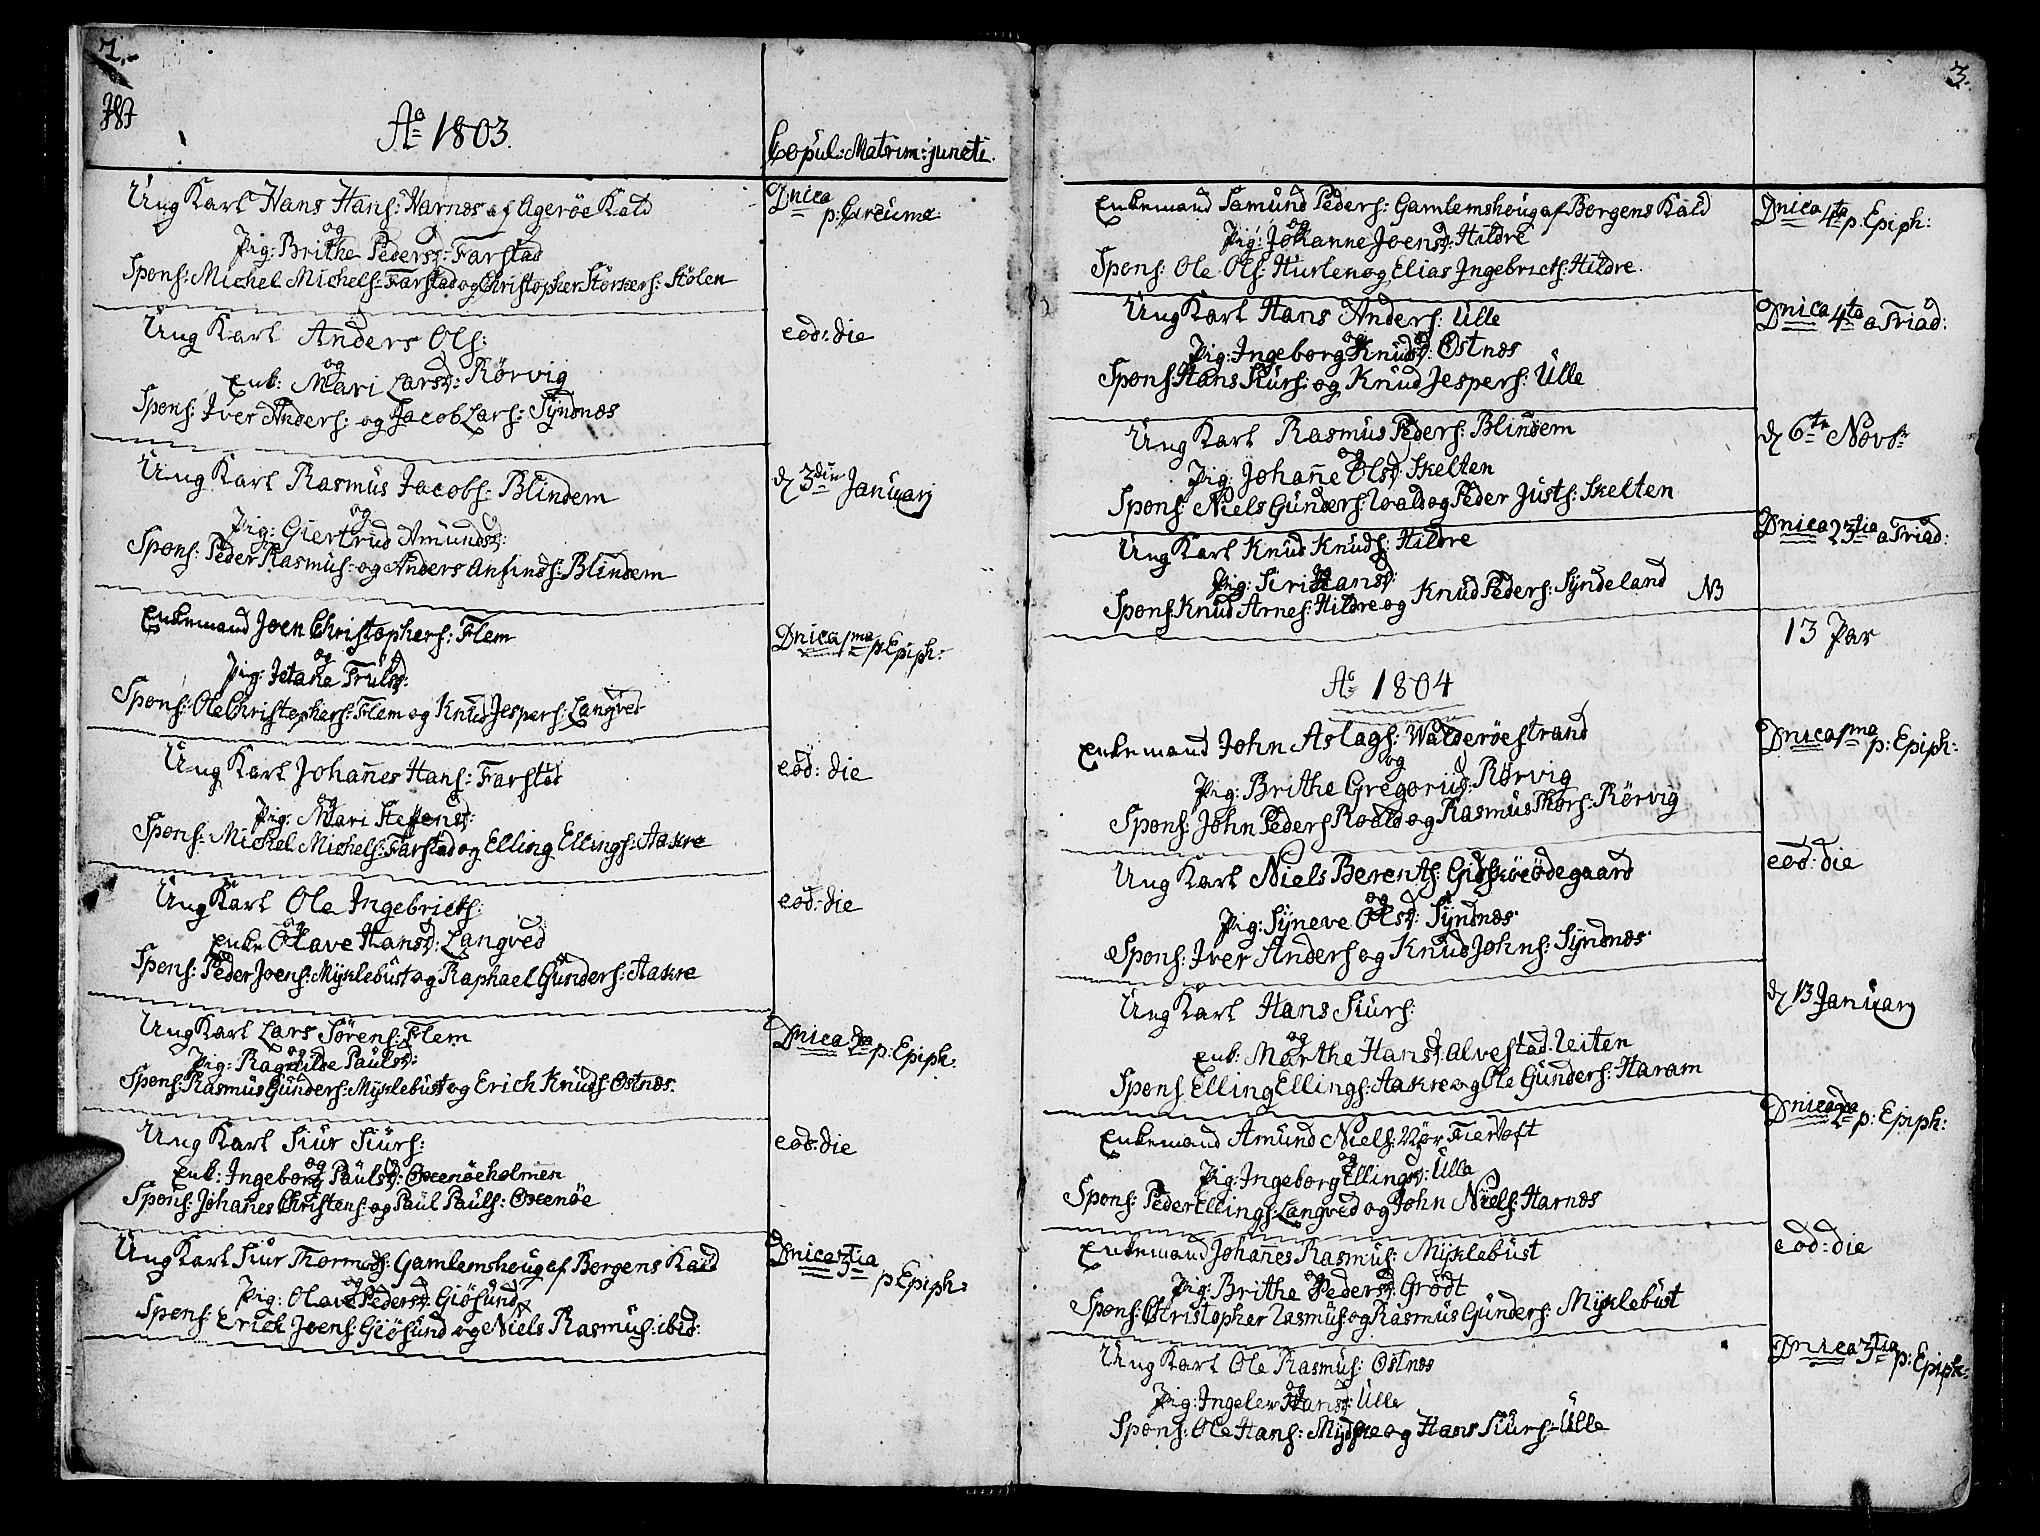 2.
Aº 1803.
Copul: Matrim: juncti.
Ung Karl Hans Hans: Harnæs af Agerøe Kald
og
Pig: Brithe Pedersd: Farstad
Spons: Michel Michels: Farstad og Christopher Størkers: Stølen
Dnica p: Circume:
Ung Karl Anders Ols:
og
Enk: Mari Larsd: Rørvig
Spons: Iver Anders: og Jacob Lars: Syndnæs
eod: die
Ung Karl Rasmus Jacobs: Blindem
og
Pig: Giertrud Amundsd:
Spons: Peder Rasmus: og Anders Anfinds: Blindem
d 3die Januarj
Enkemand Joen Christophers: Flem
og
Pig: Trulsd:
Spons: Ole Christophers: Flem og Knud Jespers: Langved
Dnica 1ma p Epiph:
Ung Karl Johanes Hans: Farstad
og
Pig: Mari Steffensd:
Spons: Michel Michels: Farstad og Elling Ellings: Aakre
eod: die
Ung Karl Ole Ingebricts:
og
Enke Olave Hansd: Langved
Spons: Peder Joens: Myklebust og Raphael Gunders: Aakre
eod: die
Ung Karl Lars Sørens: Flem
og
Pig: Ragnilde Paulsd:
Spons: Rasmus Gunders: Myklebust og Erich Knuds: Ostnæs.
Dnica 2da p: Epiph:
Ung Karl Siur Siurs:
og
Enk: Ingeborg Paulsd: Oxenøeholmen
Spons: Johanes Christens: og Paul Pauls: Oxenøe
eod: die
Ung Karl Siur Thormods: Gamlemshoug af Borgens Kald
og
Pig: Olave Pedersd: Giøsund
Spons: Erich Joens: Giøsund og Niels Rasmus: ibid:
Dnica 3tia p Epiph:
3.
Enkemand Samund Peders: Gamlemshoug af Borgens Kald
og
Pig: Johanne Joensd: Hildre
Spons: Ole Ols: Hurlen og Elias Ingebricts: Hildre.
Dnica 4ta p: Epiph:
Ung Karl Hans Anders: Ulle
og
Pig: Ingeborg Knudsd: Ostnæs
Spons: Hans Siurs: og Knud Jespers: Ulle
Dnica 4ta a Triad:
Ung Karl Rasmus Peders: Blindem
og
Pig: Johañe Olsd: Skelten
Spons: Niels Gunders: Roald og Peder Justs: Skelten
d 6te Novbr
Ung Karl Knud Knuds: Hildre
og
Pig: Siri Hansd:
Spons: Knud Arnes: Hildre og Knud Peders: Syndeland NB
Dnica 23tia a Triad:
13 Par
Aº 1804
Enkemand John Aslags: Walderøestrand
og
Pig: Brithe Gregoriid: Rørvig
Spons: John Peders Roald og Rasmus Thors: Rørvig
Dnica 1ma p: Epiph:
Ung Karl Niels Berents: Gidskøeødegaard
og
Pig: Syneve Olsd: Syndnæs
Spons: Iver Anders og Knud Johns: Syndnæs
eod: die
Ung Karl Hans Siurs:
og
Enk: Marthe Hansd: Alvestad. Leiten
Spons: Elling Ellings: Aakre og Ole Gunders: Haram
d 13 Januarj
Enkemand Amund Niels: Nør Fiertoft
og
Pig: Ingeborg Ellingsd: Ulla
Spons: Peder Ellings: Langved og John Niels: Harnæs
Dnica 2da p: Epiph:
Enkemand Johañes Rasmus: Myklebust
og
Pig: Brithe Pedersd: Grødt
Spons: Christopher Rasmus og Rasmus Gunders: Myklebust
eod: die
Ung Karl Ole Rasmus: Ostnæs
og
Pig: Ingeler Hansd: Ulle
Spons: Ole Hans: og Hans Siurs: Ulle
Dnica 3tia p: Epiph: